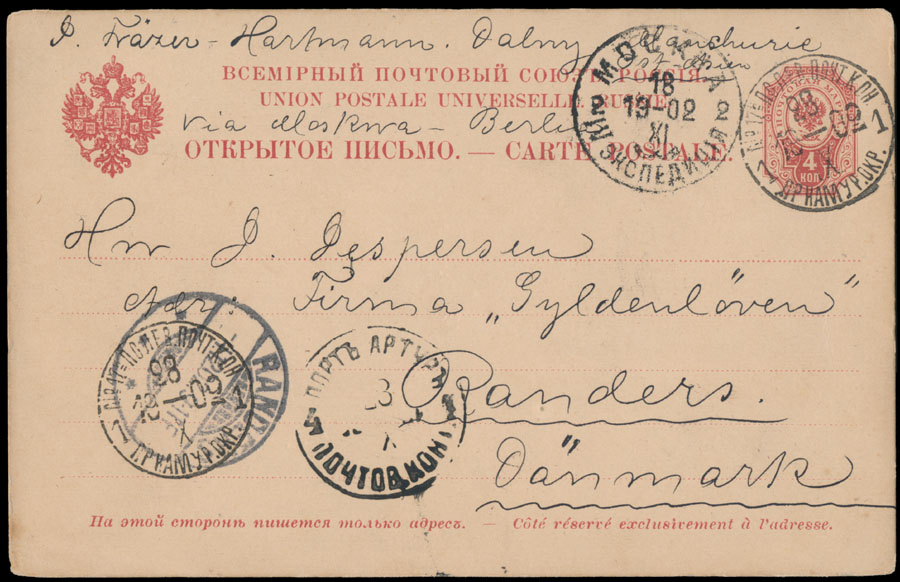 J. Fräzer - Hartmann. Dalny Manchurie
Ost-Asien
ВСЕМІРНЫЙ ПОЧТОВЫЙ СОЮЗЪ. РОССІЯ.
UNION POSTALE UNIVERSELLE. RUSSIE.
via Moskwa - Berlin
ОТКРЫТОЕ ПИСЬМО. — CARTE POSTALE.
МОСКВА
18
19-02
XI
2
ЭКСПЕДИЦІЯ
ПОЧТ. КОН.
28
-02
X
1
ПРИАМУР. ОКР.
4
КОП
Hrr J. Jespersen
Adr: Firma „Gyldenlöven"
Randers.
Dänmark
RAND
ПОЛЕВ. ПОЧТ. КОН.
28
-02
X
1
ПРИАМУР. ОКР.
ПОРТЪ АРТУРЪ
X
ПОЧТОВ. КОН.
На этой сторонѣ пишется только адресъ. — Côté réservé exclusivement à l'adresse.